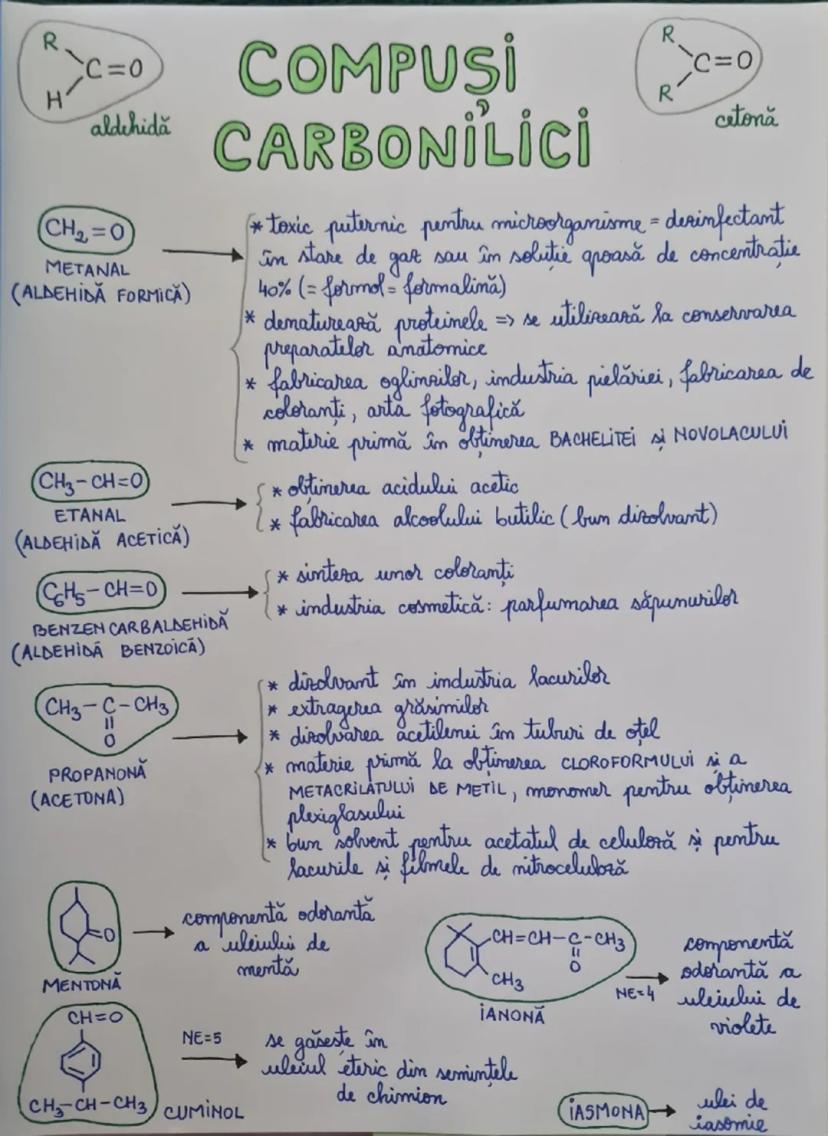 R
C=O
H
aldehidă
COMPUȘI
CARBONILICI
R
C=O
R
cetonă
CH₂=O
METANAL
(ALDEHIDĂ FORMICĂ)
* toxic puternic pentru microorganisme = dezinfectant
în stare de gaz sau în soluție apoasă de concentrație
40% (= formol = formalină)
* denaturează proteinele => se utilizează la conservarea
preparatelor anatomice
* fabricarea oglinzilor, industria pielăriei, fabricarea de
coloranți, arta fotografică
* materie primă în obținerea BACHELITEI și NOVOLACULUI
CH₃-CH=O
ETANAL
(ALDEHIDĂ ACETICĂ)
* obținerea acidului acetic
* fabricarea alcoolului butilic (bun dizolvant)
C₆H₅-CH=O
BENZENCARBALDEHIDĂ
(ALDEHIDĂ BENZOICĂ)
* sinteza unor coloranți
* industria cosmetică: parfumarea săpunurilor
CH₃-C-CH₃
O
PROPANONĂ
(ACETONA)
* dizolvant în industria lacurilor
* extragerea grăsimilor
* dizolvarea acetilenei în tuburi de oțel
* materie primă la obținerea CLOROFORMULUI și a
METACRILATULUI DE METIL, monomer pentru obținerea
plexiglasului
* bun solvent pentru acetatul de celuloză și pentru
lacurile și filmele de nitroceluloză
=O
MENTONĂ
componentă odorantă
a uleiului de
mentă
CH=CH-C-CH₃
O
CH₃
IANONĂ
NE=4
componentă
odorantă a
uleiului de
violete
CH=O
CH₃-CH-CH₃
CUMINOL
NE=5
se găsește în
uleiul eteric din semințele
de chimion
IASMONA
ulei de
iasomie